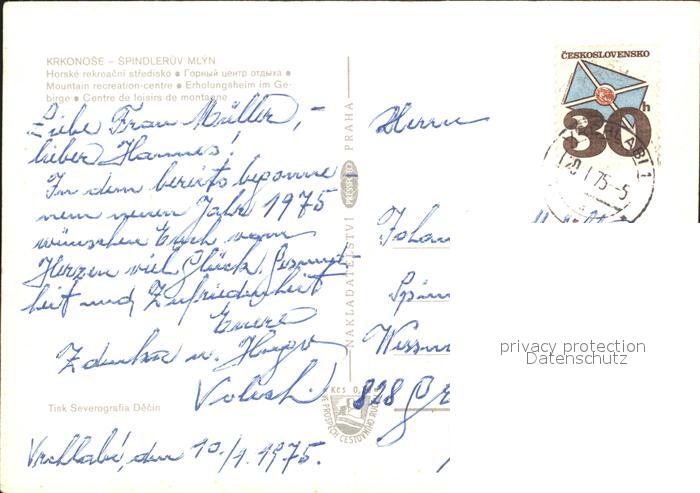 KRKONOŠE – ŠPINDLERŮV MLÝN
Horské rekreační středisko • Горный центр отдыха •
Mountain recreation-centre • Erholungsheim im Ge-
birge • Centre de loisirs de montagne
Liebe Frau Müller,-
lieber Hannes!
In dem bereits begonne
nem neuen Jahr 1975
wünschen Euch vom
Herzen viel Glück, Gesund-
heit und Zufriedenheit
Euere
Zdenka u. Hugo
Tisk Severografia Děčín
Vrchlabí, den 10./1. 1975.
NAKLADATELSTVÍ PRESSFOTO PRAHA
Kčs 0,
VE PROSPĚCH CESTOVNÍHO RUCHU
ČESKOSLOVENSKO
30h
VRCHLABÍ 1
20.1.75-5
Herrn
Johan
828
privacy protection
Datenschutz